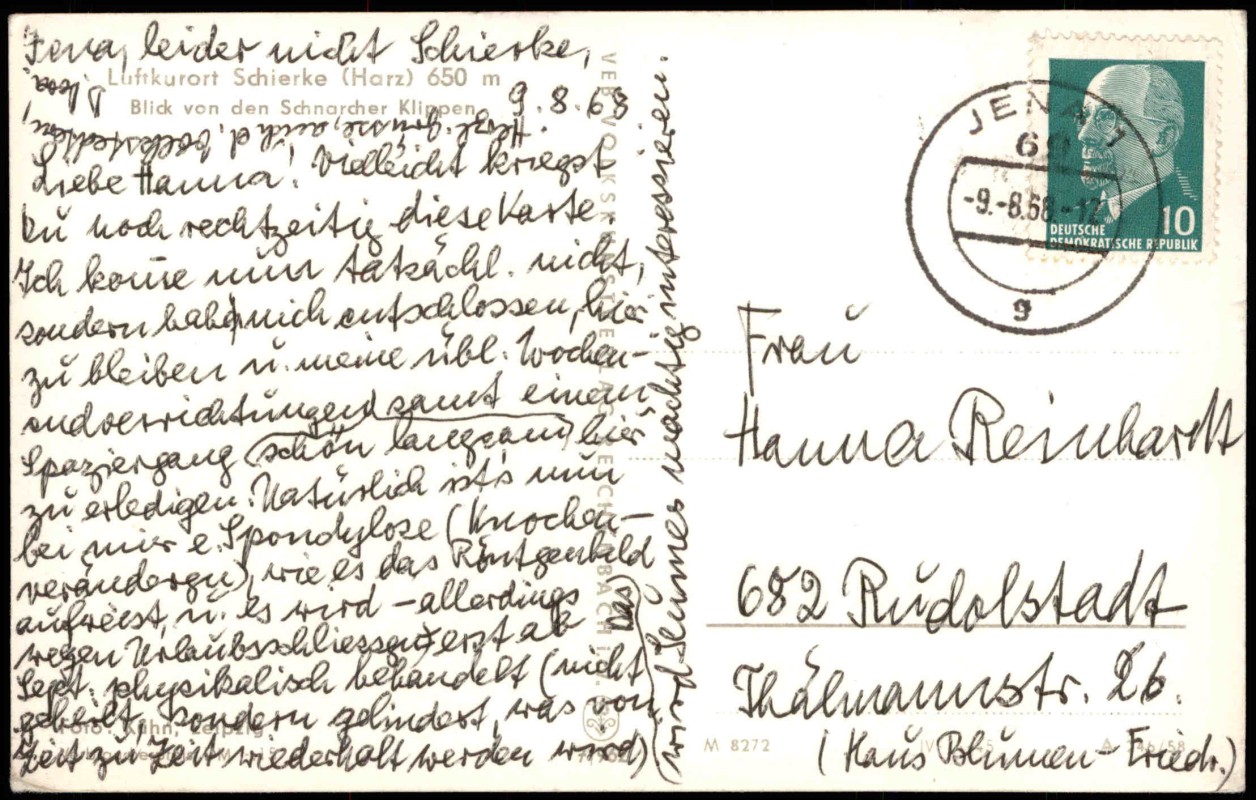 Jena, leider nicht Schierke,
Luftkurort Schierke (Harz) 650 m
Blick von den Schnarcher Klippen
9.8.68
Herzl. Grüsse, auch d. Volkstedter,
Liebe Hanna! Vielleicht kriegst
Du noch rechtzeitig diese Karte.
Ich komme nun tatsächl. nicht,
sondern habe mich entschlossen, hier
zu bleiben u. meine übl. Wochen-
endverrichtungen samt einem
Spaziergang (schön langsam) hier
zu erledigen. Natürlich ist's nun
bei mir e. Spondylose (Knochen-
veränderg.), wie es das Röntgenbild
aufweist, u. es wird – allerdings
wegen Urlaubsschliessg. erst ab
Sept. physikalisch behandelt (nicht
geheilt, sondern gelindert, was von
Zeit zu Zeit wiederholt werden wird)
(Das
wird Blümes mächtig interessieren.
Foto: Kühn, Leipzig
VEB VOLKSKUNSTVERLAG REICHENBACH I. V.
JENA 1
69
-9.-8.68.-12
g
10
DEUTSCHE
DEMOKRATISCHE REPUBLIK
Frau
Hanna Reinhardt
682 Rudolstadt
Thälmannstr. 26.
(Haus Blumen-Friedr.)
M 8272